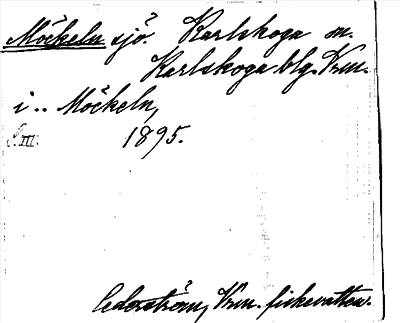 Möckeln sjö. Karlskoga sn.
Karlskoga blg. Vrm.
i .. Möckeln,
S. III. 1895.
Cederström, Vrm. fiskevatten.